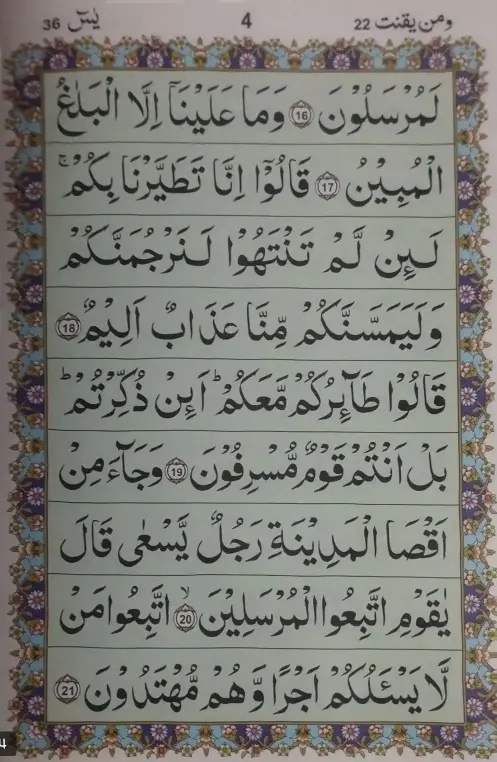 ومن يقنت 22 4 يٰسٓ 36
لَمُرْسَلُوْنَ ⑯ وَمَا عَلَيْنَاۤ اِلَّا الْبَلٰغُ
الْمُبِيْنُ ⑰ قَالُوْۤا اِنَّا تَطَيَّرْنَا بِكُمْ ۚ
لَىِٕنْ لَّمْ تَنْتَهُوْا لَنَرْجُمَنَّكُمْ
وَلَيَمَسَّنَّكُمْ مِّنَّا عَذَابٌ اَلِيْمٌ ⑱
قَالُوْا طَآىِٕرُكُمْ مَّعَكُمْ ؕ اَىِٕنْ ذُكِّرْتُمْ ؕ
بَلْ اَنْتُمْ قَوْمٌ مُّسْرِفُوْنَ ⑲ وَجَآءَ مِنْ
اَقْصَا الْمَدِيْنَةِ رَجُلٌ يَّسْعٰى قَالَ
يٰقَوْمِ اتَّبِعُوا الْمُرْسَلِيْنَ ۙ ⑳ اتَّبِعُوْا مَنْ
لَّا يَسْـَٔلُكُمْ اَجْرًا وَّهُمْ مُّهْتَدُوْنَ ㉑